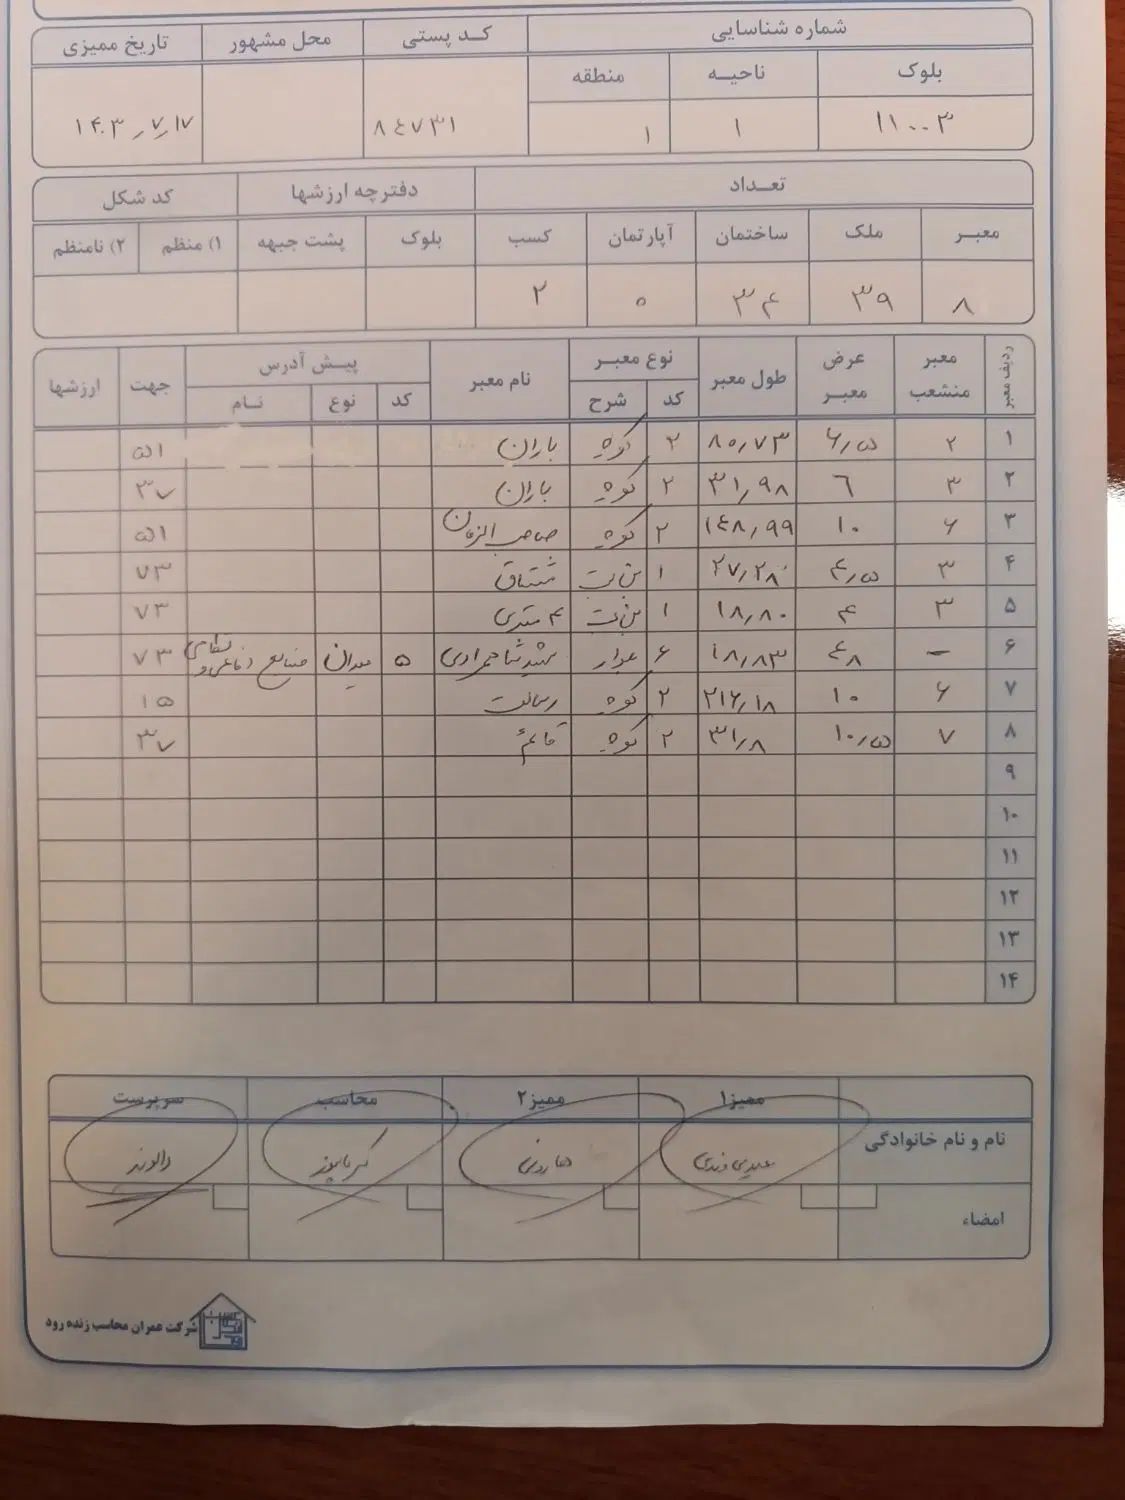 شماره شناسایی کـد پستی محل مشهور تاریخ ممیزی
بلوک ناحیـه منطقه
۱۱۰۰۳ ۱ ۱ ۸٤۷۳۱ ۱۴۰۳٫۷٫۱۷
تعـداد دفترچه ارزشها کد شکل
معبـر ملک ساختمان آپارتمان کسب بلوک پشت جبهه ۱) منظم ۲) نامنظم
۸ ۳۹ ۳۴ ۰ ۲
ردیف معبر معبر منشعب عرض معبـر طول معبر نوع معبـر نام معبر پیـش آدرس جهت ارزشها
کد شرح کد نوع نـام
۱ ۲ ۶٫۵ ۸۰٫۷۳ ۲ کوچه باران ۵۱
۲ ۳ ٦ ۳۱٫۹۸ ۲ کوچه باران ۳۷
۳ ۶ ۱۰ ۱٤۸٫۹۹ ۲ کوچه صاحب الزمان ۵۱
۴ ۳ ۴٫۵ ۲۷٫۲۸ ۱ بن بست مشتاق ۷۳
۵ ۳ ۴ ۱۸٫۸۰ ۱ بن بست ۴ متری ۷۳
۶ – ٤۸ ۱۸٫۸۳ ۶ بلوار شهید شاهمرادی ۵ میدان صنایع دفاعی و نظامی ۷۳
۷ ۶ ۱۰ ۲۱۶٫۱۸ ۲ کوچه رسالت ۱۵
۸ ۷ ۱۰٫۵ ۳۱٫۸ ۲ کوچه قائم ۳۷
۹
۱۰
۱۱
۱۲
۱۳
۱۴
ممیز۱ ممیز۲ محاسب سرپرست
نام و نام خانوادگی دالوند
امضاء
شرکت عمران محاسب زنده رود